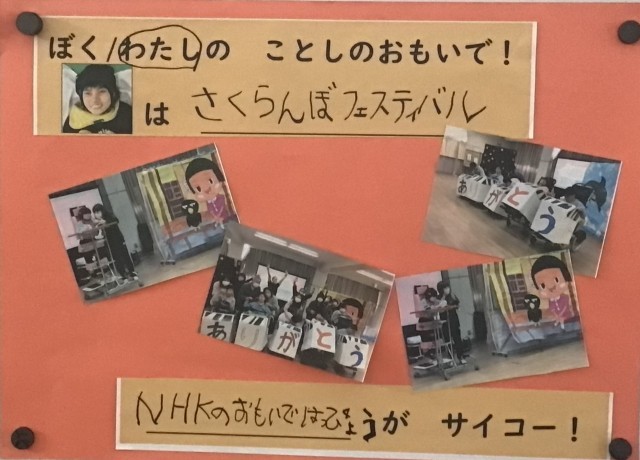 ぼく/わたしの ことしのおもいで!
は さくらんぼフェスティバル
ありがとう
ありがとう
NHKのおもいではひょうが サイコー!